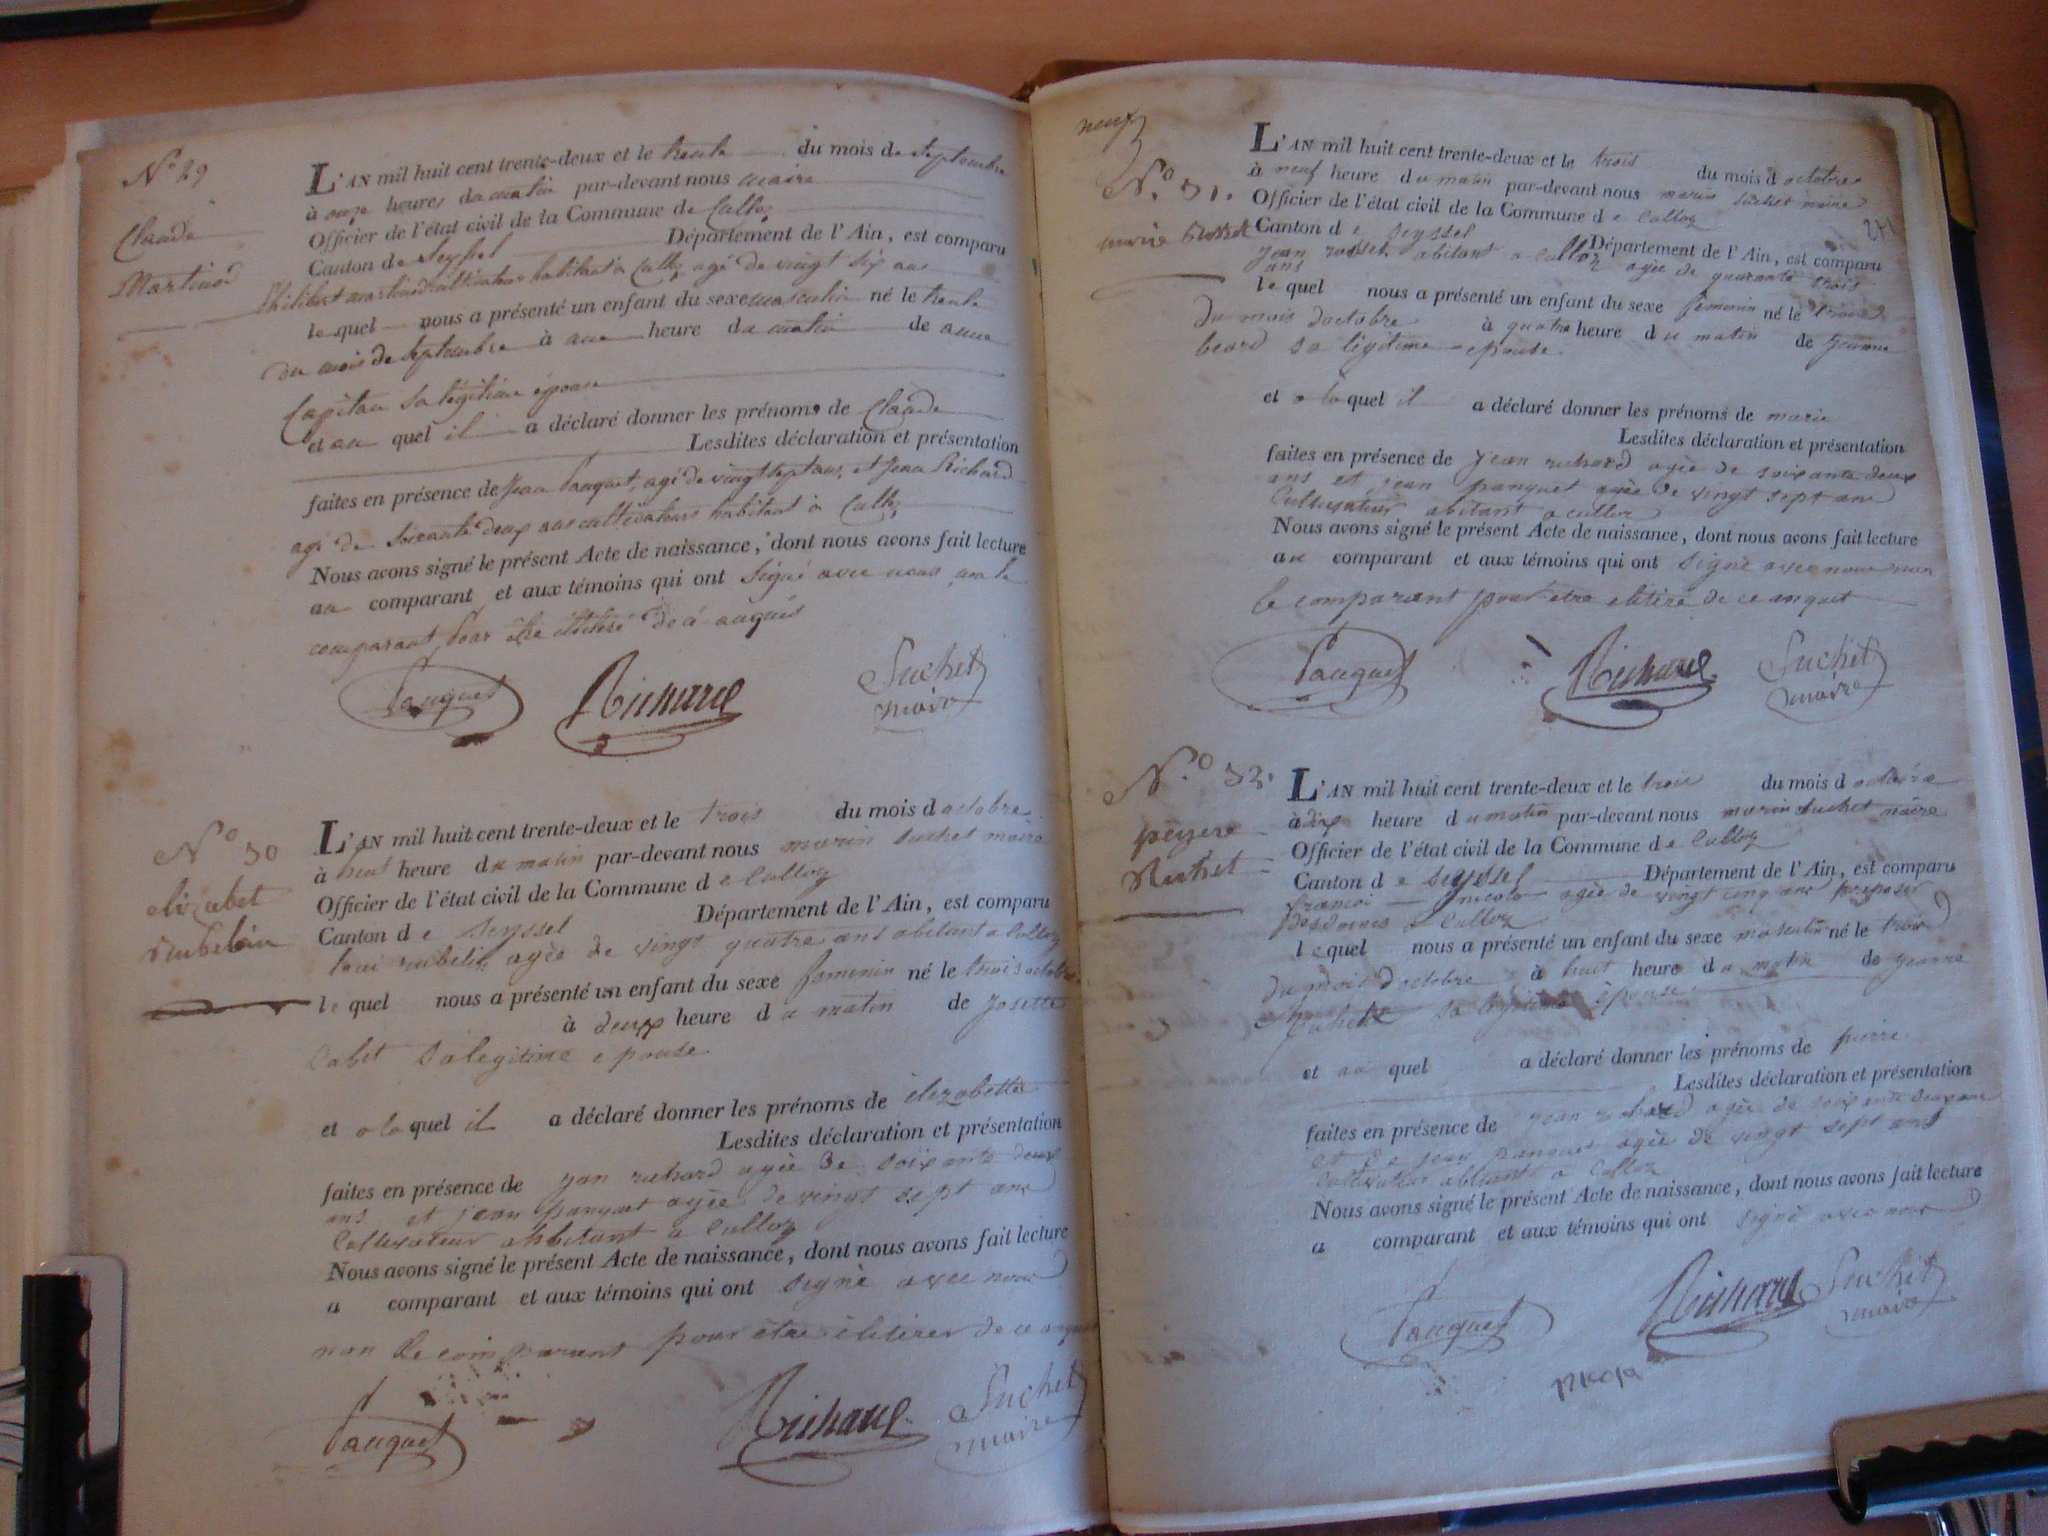 No 29
Claude
Martinod
L'AN mil huit cent trente-deux et le trente du mois de Septembre
à onze heures du matin par-devant nous maire
Officier de l'état civil de la Commune de Culloz
Canton de Seyssel Département de l'Ain, est comparu
Philibert martinod cultivateur habitant à Culloz agé de vingt six ans
lequel nous a présenté un enfant du sexe masculin né le trente
du mois de Septembre à une heure du matin de anne
Capitan sa légitime épouse
et au quel il a déclaré donner les prénoms de Claude
Lesdites déclaration et présentation
faites en présence de Jean Pauquet, agé de vingt sept ans, et Jean Richard
agé de soixante deux ans cultivateurs habitant à Culloz
Nous avons signé le présent Acte de naissance, dont nous avons fait lecture
au comparant et aux témoins qui ont signé avec nous, non le
comparant pour être illitéré de ce anquis
Pauquet Richard Suchet
maire
No 30
elizabet
rubelin
L'AN mil huit cent trente-deux et le trois du mois d octobre
à huit heure du matin par-devant nous marin suchet maire
Officier de l'état civil de la Commune de Culloz
Canton de Seyssel Département de l'Ain, est comparu
loui rubelin agée de vingt quatre ans abitant a Culloz
lequel nous a présenté un enfant du sexe feminin né le trois octobre
à deux heure du matin de Josette
Cabet sa legitime epouse
et a la quel il a déclaré donner les prénoms de elizabette
Lesdites déclaration et présentation
faites en présence de jean richard agée de soixante deux
ans et jean panquet agée de vingt sept ans
Cultivateur abitant a Culloz
Nous avons signé le présent Acte de naissance, dont nous avons fait lecture
a comparant et aux témoins qui ont signé avec nous
non le comparant pour être ilitirer de ce
Pauquet Richard Suchet
maire
neuf
271
No. 31.
marie rosset
L'AN mil huit cent trente-deux et le trois du mois d octobre
à neuf heure du matin par-devant nous marin suchet maire
Officier de l'état civil de la Commune de Culloz
Canton de Seyssel Département de l'Ain, est comparu
jean rosset abitant a Culloz agée de quarante trois
ans
lequel nous a présenté un enfant du sexe femenin né le trois
du mois doctobre à quatre heure du matin de jeanne
beard sa légitime epouse
et a la quel il a déclaré donner les prénoms de marie
Lesdites déclaration et présentation
faites en présence de jean richard agée de soixante deux
ans et jean panquet agée de vingt sept ans
Cultivateur abitant a culloz
Nous avons signé le présent Acte de naissance, dont nous avons fait lecture
au comparant et aux témoins qui ont signé avec nous non
le comparant pour etre ilitiré de ce anquit
Pauquet Richard Suchet
maire
No. 32.
L'AN mil huit cent trente-deux et le trois du mois d octobre
à dix heure du matin par-devant nous marin suchet maire
Officier de l'état civil de la Commune de Culloz
Canton de Seyssel Département de l'Ain, est comparu
francoi nicolo agée de vingt cinq ans preposer
des douanes a Culloz
lequel nous a présenté un enfant du sexe masculin né le trois
du mois doctobre à huit heure du matin de jeanne
sa legitime épouse
et au quel a déclaré donner les prénoms de pierre
Lesdites déclaration et présentation
faites en présence de jean richard agée de soixante deux ans
et de jean panquet agée de vingt sept ans
Cultivateur abitant a Culloz
Nous avons signé le présent Acte de naissance, dont nous avons fait lecture
a comparant et aux témoins qui ont signé avec nous
Pauquet Richard Suchet
maire